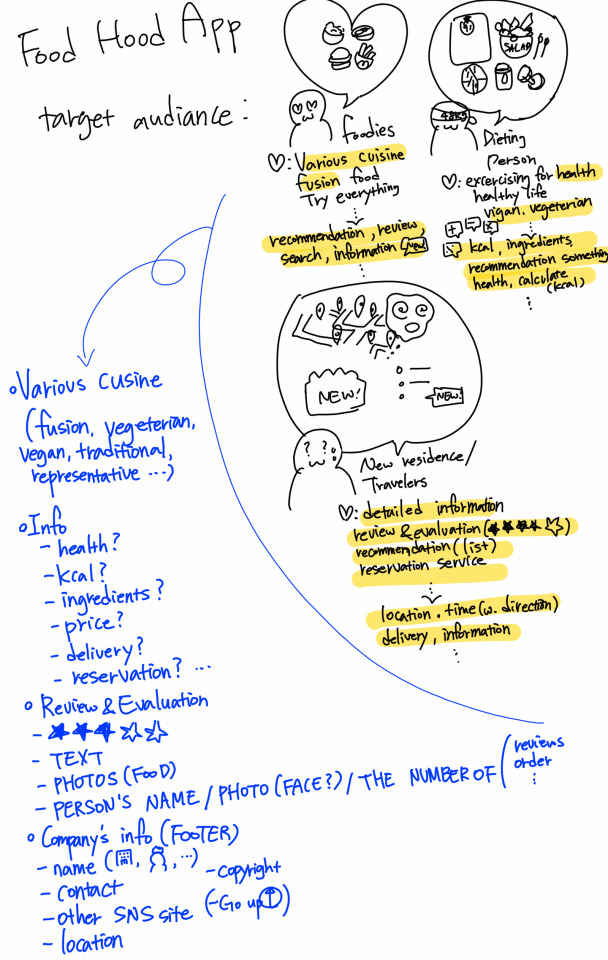 Food Hood App
target audiance:
SALAD
48KG
Foodies
♡: Various cuisine
fusion food
Try everything
recommendation, review,
search, information NEW!
Dieting
Person
♡: excercising for health
healthy life
vigan. vegeterian
kcal, ingredients,
recommendation something
health, calculate
(kcal)
NEW!
NEW!
? ?
New residence/
Travelers
♡: detailed information
review & evaluation (★★★★☆)
recommendation (list)
reservation service
location. time (w. direction)
delivery, information
Various cusine
(fusion, vegeterian,
vegan, traditional,
representative ...)
Info
- health?
- kcal?
- ingredients?
- price?
- delivery?
- reservation? ...
Review & Evaluation
- ★★★☆☆
- TEXT
- PHOTOS (FOOD)
- PERSON'S NAME / PHOTO (FACE?) / THE NUMBER OF (reviews
order
Company's info (FOOTER)
- name ( , , ...)
- copyright
- contact
- other SNS site (- Go up ↑)
- location